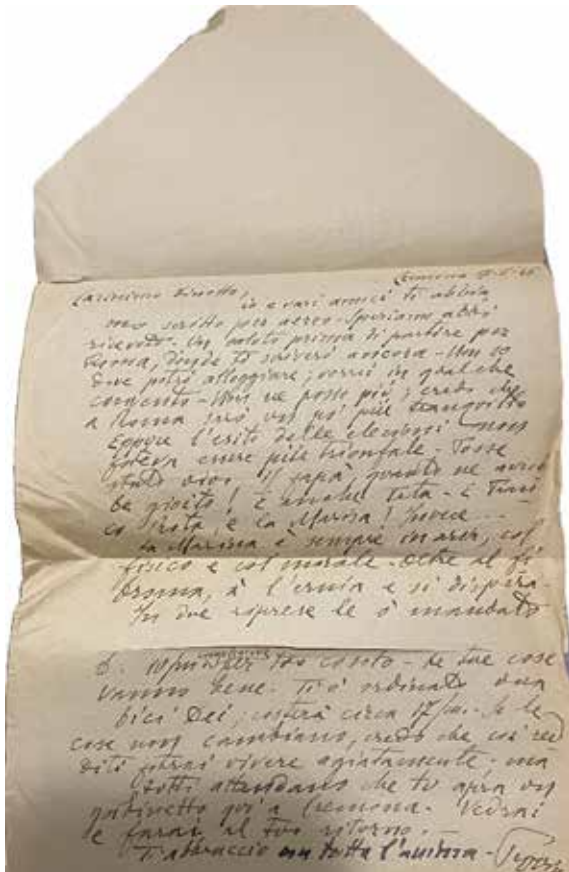 Carissimo
io e vari amici ti abbia
mo scritto per aereo - Speriamo abbi
ricevuto. Un saluto prima di partire per
Roma, donde ti scriverò ancora - Non so
dove potrò alloggiare; vorrei in qualche
convento - Non ne posso più; credo che
a Roma sarò un po' più tranquillo
Eppure l'esito delle elezioni non
poteva essere più trionfale - Fosse
stato vivo il papà, quanto ne avreb
be gioito! E anche - E
e la Marisa! Invece
La Marisa è sempre in, col
fisico e col morale - Oltre al fi
broma, à l'ernia e si dispera -
In due riprese le ò mandato
per tuo conto - Le tue cose
vanno bene. Ti ò ordinato una
bici Dei; costerà circa 17/m. Se le
cose non cambiano, credo che coi red
diti potrai vivere agiatamente - ma
tutti attendono che tu apra un
gabinetto qui a Cremona. Vedrai
e farai al tuo ritorno. -
Ti abbraccio con tutta l'anima -